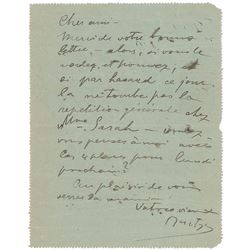 Cher ami -
Merci de votre bonne
lettre - alors, si vous le
voulez, et pouvez,
si par hasard ce jour
là ne tombe pas la
répétition générale chez
Mme Sarah -
vous penser à moi avec
les 4 places pour lundi
prochain?
Au plaisir de vous
serrer la main -
Votre